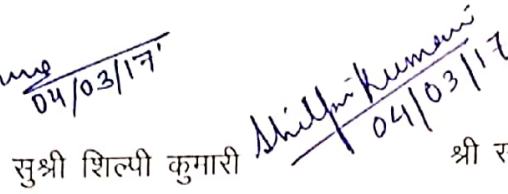 04/03/17
Shilpi Kumari
04/03/17
सुश्री शिल्पी कुमारी
श्री